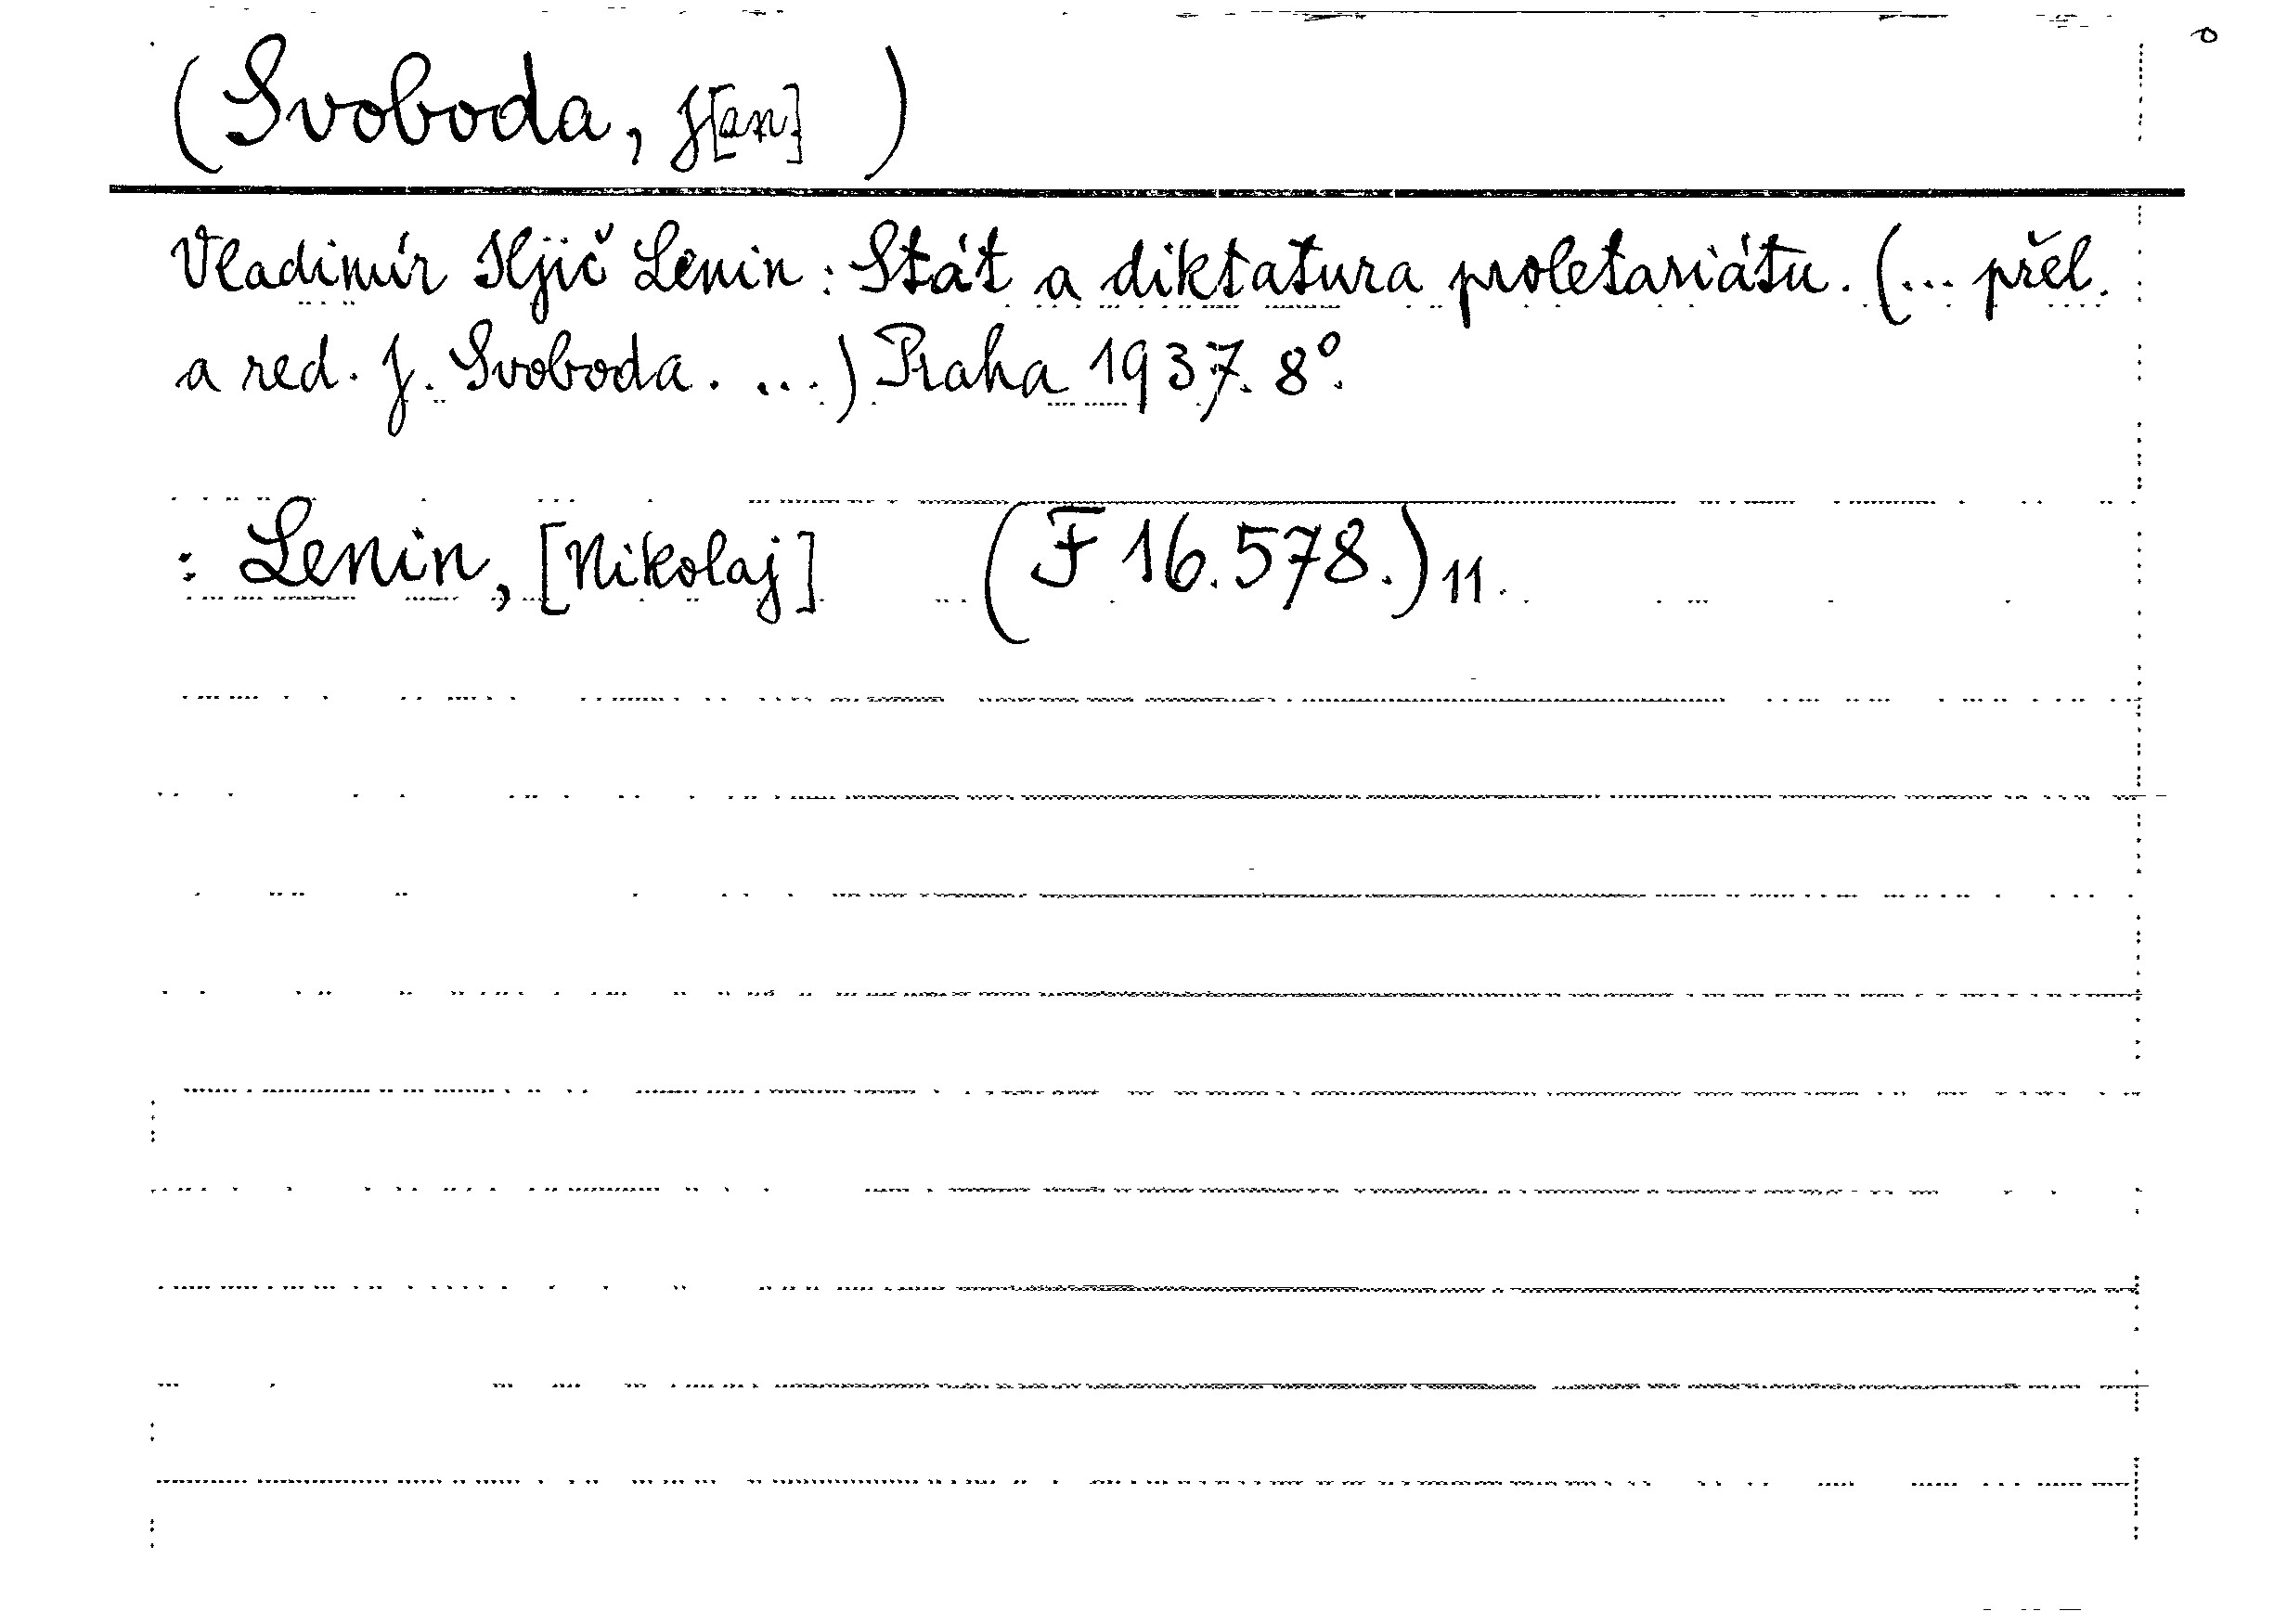 (Svoboda, J[an] )
Vladimír Iljič Lenin: Stát a diktatura proletariátu. (... přel.
a red. J. Svoboda. ...) Praha 1937. 8°.
: Lenin, [Nikolaj] (F 16.578.) 11.